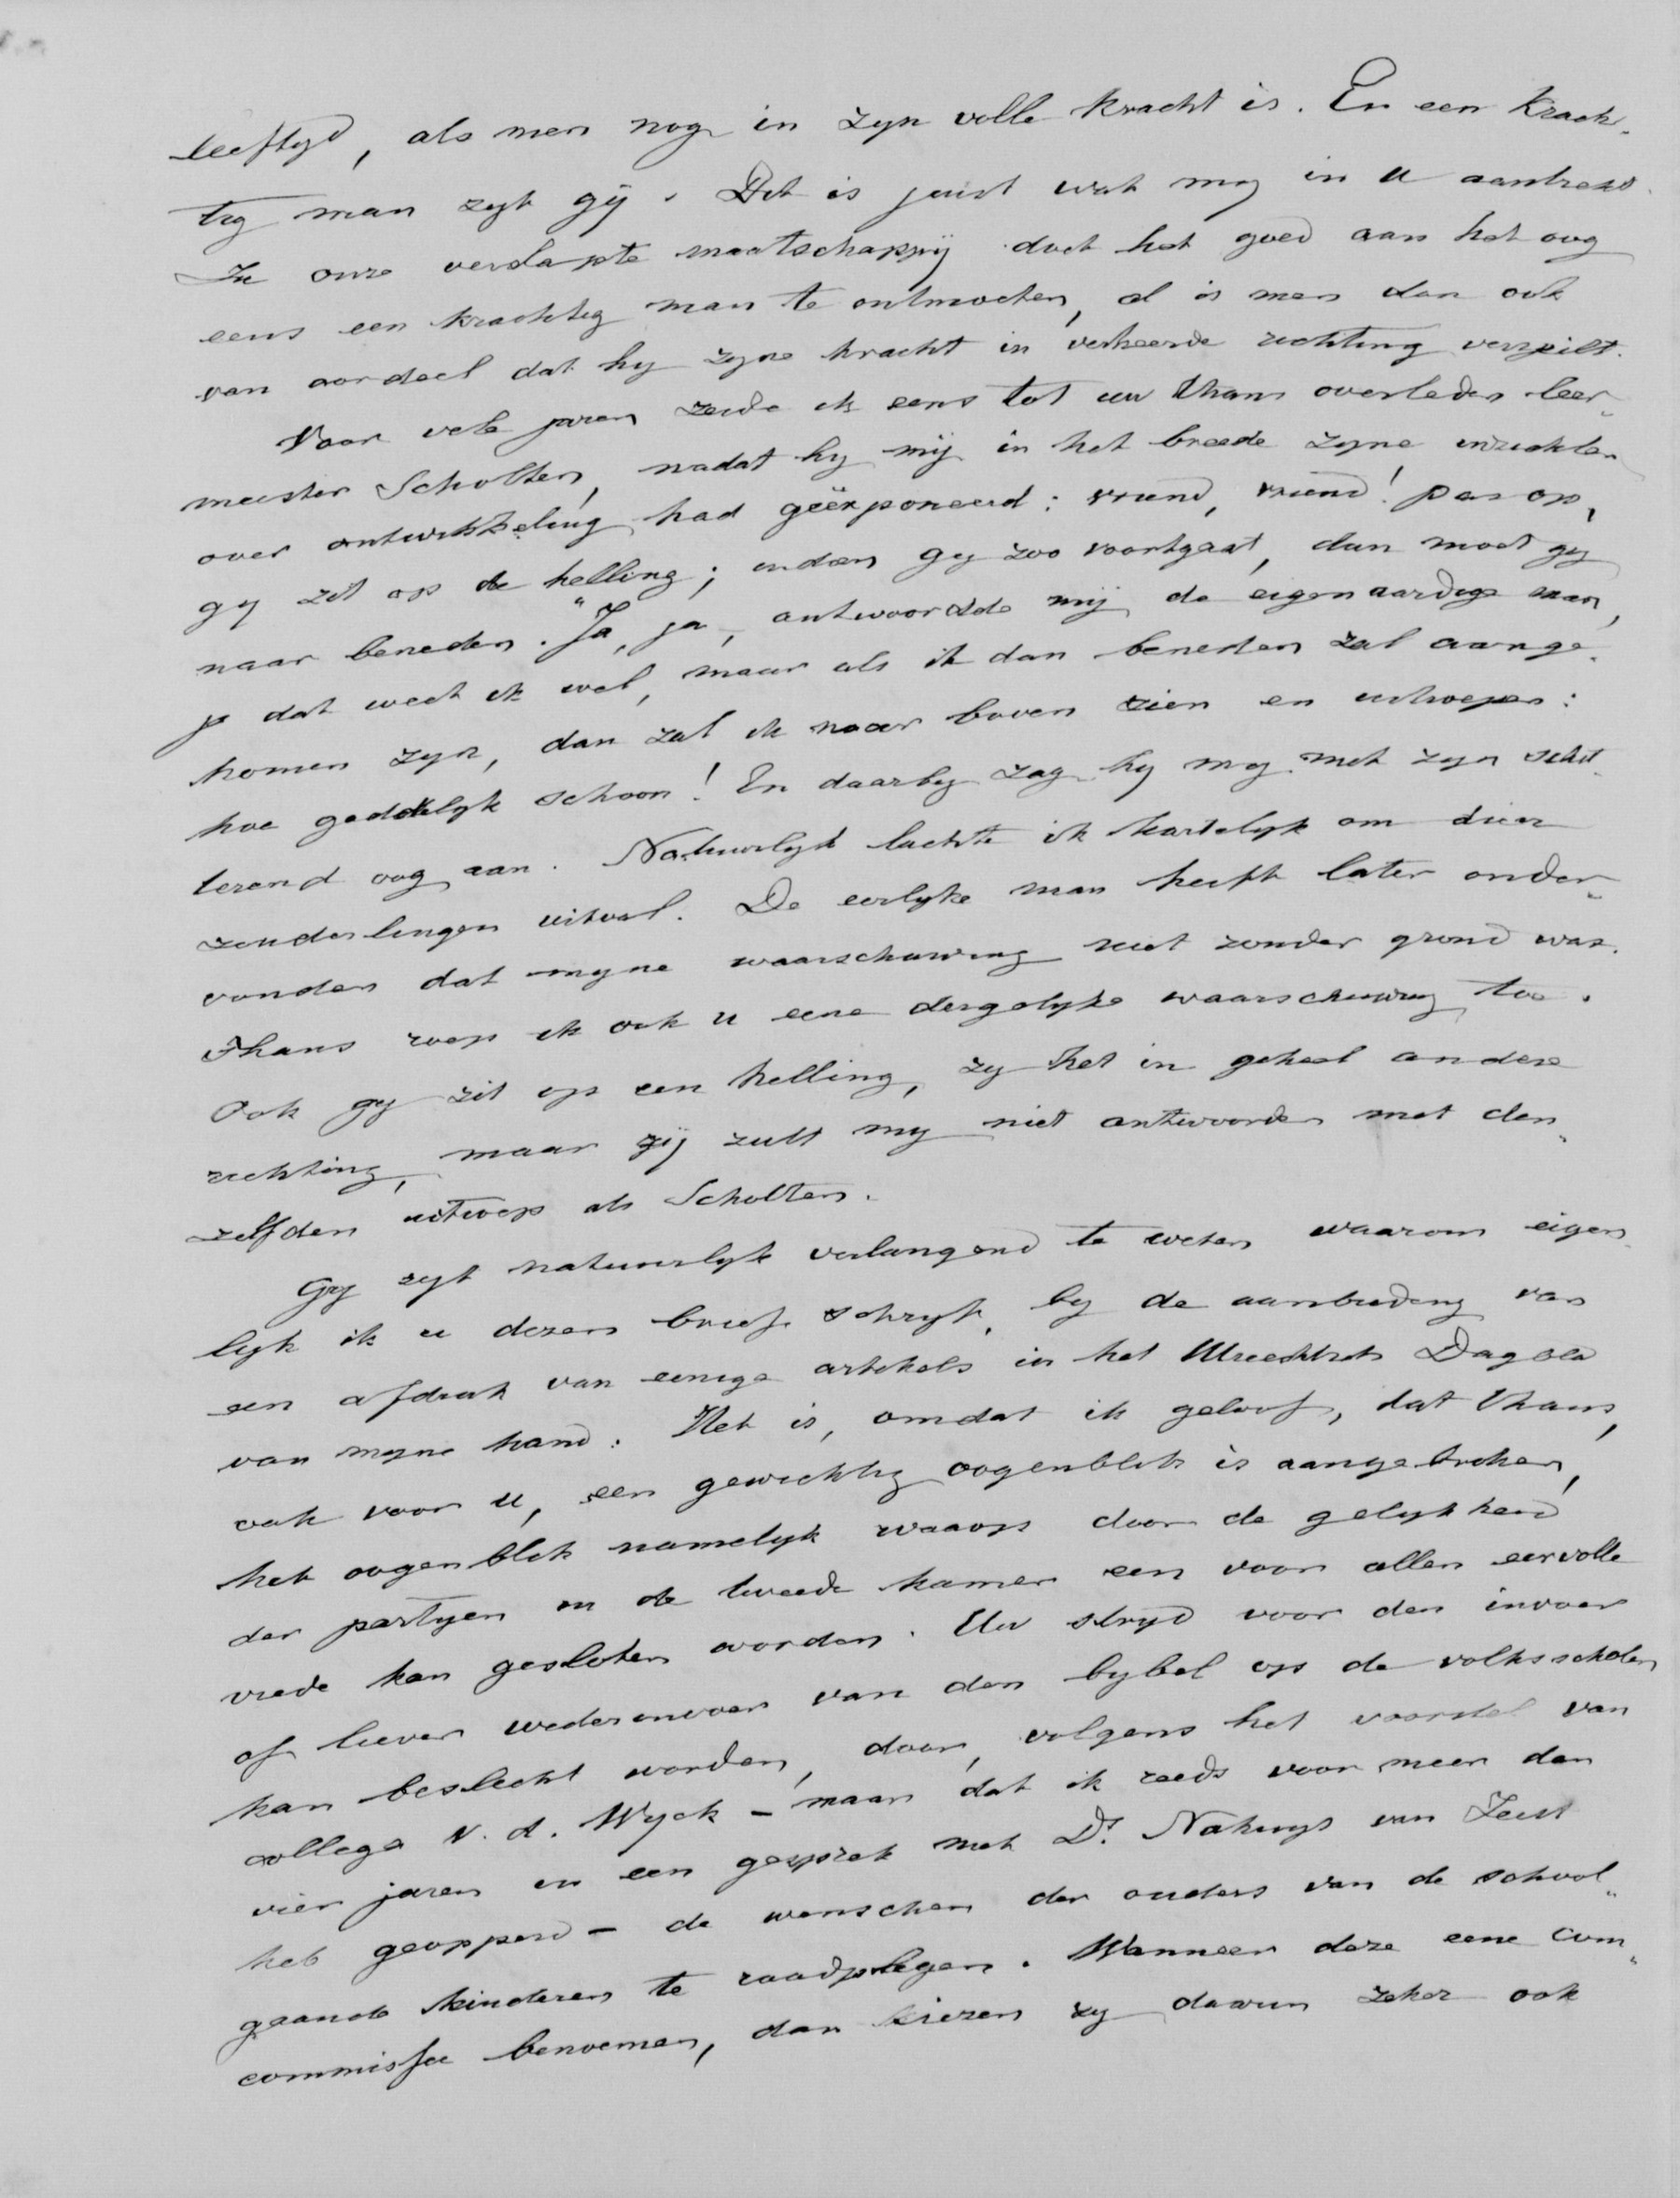 leeftyd, als men nog in zyn volle kracht is. En een krach-
tig man zyt gij. Dit is juist wat my in u aantrekt.
In onze verslapte maatschappij doet het goed aan het oog
eens een krachtig man te ontmoeten, al is men dan ook
van oordeel dat hy zyne kracht in verkeerde richting verspilt.
Voor vele jaren zeide ik eens tot uw thans overleden leer-
meester Scholten, nadat hy mij in het breede zyne inzichten
over ontwikkeling had geëxponeerd: vriend, vriend! pas op,
gy zit op de helling; indien gy zoo voortgaat, dan moet gy
naar beneden. "Ja, ja, antwoordde mij de eigenaardige man,
ja dat weet ik wel, maar als ik dan beneden zal aange-
komen zyn, dan zal ik naar boven zien en uitroepen:
hoe goddelyk schoon! En daarby zag hy my met zyn schit-
terend oog aan. Natuurlyk lachte ik hartelyk om dien
zonderlingen uitval. De eerlyke man heeft later onder-
vonden dat myne waarschuwing niet zonder grond was.
Thans roep ik ook u eene dergelyke waarschuwing toe.
Ook gy zit op een helling, zy het in geheel andere
richting, maar gij zult my niet antwoorden met den-
zelfden uitroep als Scholten.
Gy zyt natuurlyk verlangend te weten waarom eigen-
lyk ik u dezen brief schryf, by de aanbieding van
een afdruk van eenige artikels in het Utrechtsch Dagbld
van myne hand. Het is, omdat ik geloof, dat thans,
ook voor u, een gewichtig oogenblik is aangebroken,
het oogenblik namelyk waarop door de gelykheid
der partyen in de tweede kamer een voor allen eervolle
vrede kan gesloten worden. Uw stryd voor den invoer
of liever wederinvoer van den bybel op de volksscholen
kan beslecht worden, door, volgens het voorstel van
collega v. d. Wyck – maar dat ik reeds voor meer dan
vier jaren in een gesprek met Dr. Nahuys van Zeist
heb geopperd – de wenschen der ouders van de school-
gaande kinderen te raadplegen. Wanneer deze eene com-
commissie benoemen, dan kiezen zy daarin zeker ook